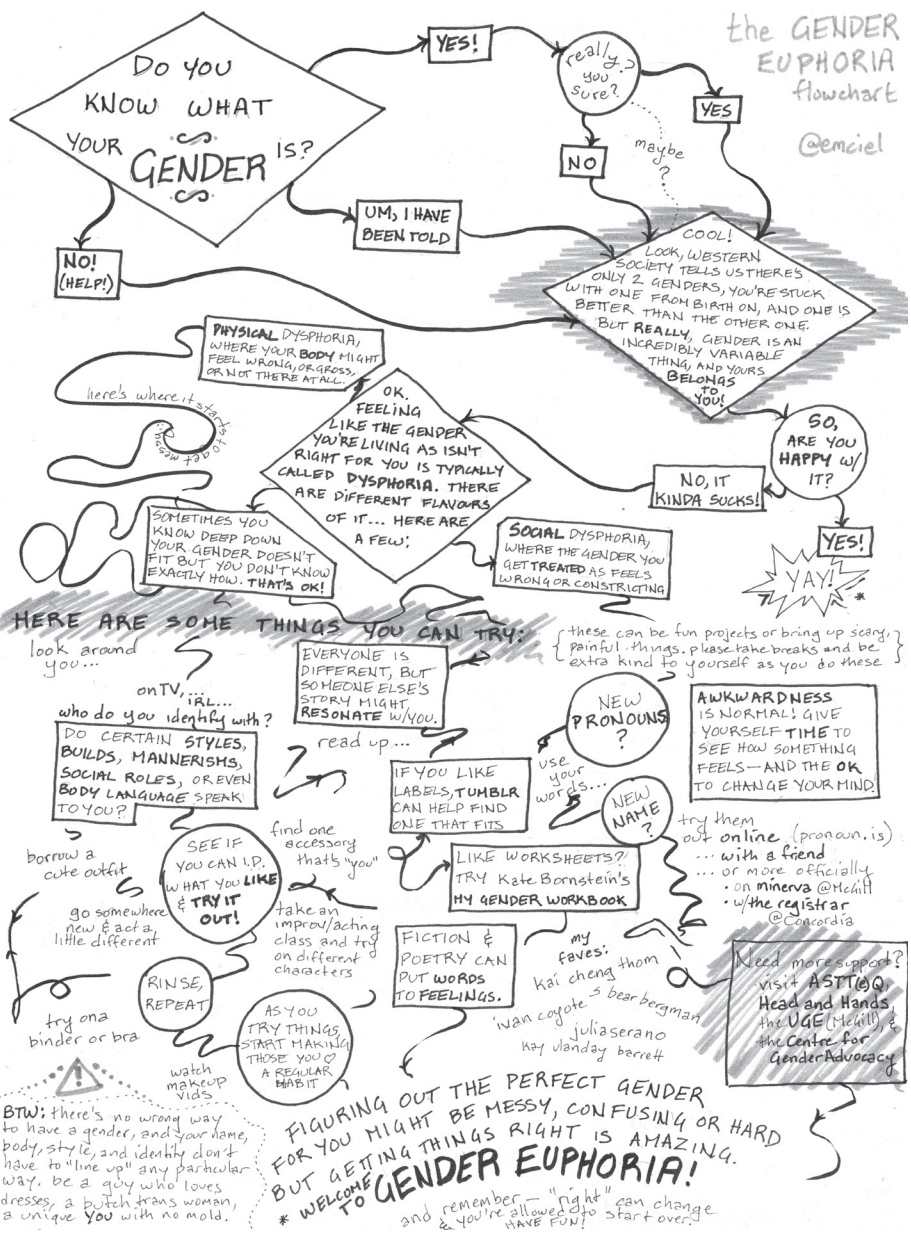 the GENDER
EUPHORIA
flowchart
@emciel
DO YOU
KNOW WHAT
YOUR GENDER IS?
YES!
really?
you
sure?
YES
NO
maybe
?
UM, I HAVE
BEEN TOLD
NO!
(HELP!)
COOL!
LOOK, WESTERN
SOCIETY TELLS US THERE'S
ONLY 2 GENDERS, YOU'RE STUCK
WITH ONE FROM BIRTH ON, AND ONE IS
BETTER THAN THE OTHER ONE.
BUT REALLY, GENDER IS AN
INCREDIBLY VARIABLE
THING, AND YOURS
BELONGS
TO
YOU!
SO,
ARE YOU
HAPPY W/
IT?
NO, IT
KINDA SUCKS!
YES!
YAY!
*
OK.
FEELING
LIKE THE GENDER
YOU'RE LIVING AS ISN'T
RIGHT FOR YOU IS TYPICALLY
CALLED DYSPHORIA. THERE
ARE DIFFERENT FLAVOURS
OF IT... HERE ARE
A FEW:
PHYSICAL DYSPHORIA,
WHERE YOUR BODY MIGHT
FEEL WRONG, OR GROSS,
OR NOT THERE AT ALL.
here's where it starts to get messy:
SOMETIMES YOU
KNOW DEEP DOWN
YOUR GENDER DOESN'T
FIT BUT YOU DON'T KNOW
EXACTLY HOW. THAT'S OK!
SOCIAL DYSPHORIA,
WHERE THE GENDER YOU
GET TREATED AS FEELS
WRONG OR CONSTRICTING
HERE ARE SOME THINGS YOU CAN TRY:
{these can be fun projects or bring up scary,
painful things. please take breaks and be
extra kind to yourself as you do these}
look around
you...
on TV, ...
IRL...
who do you identify with?
DO CERTAIN STYLES,
BUILDS, MANNERISMS,
SOCIAL ROLES, OR EVEN
BODY LANGUAGE SPEAK
TO YOU?
EVERYONE IS
DIFFERENT, BUT
SOMEONE ELSE'S
STORY MIGHT
RESONATE W/YOU.
read up...
IF YOU LIKE
LABELS, TUMBLR
CAN HELP FIND
ONE THAT FITS
LIKE WORKSHEETS?
TRY Kate Bornstein's
MY GENDER WORKBOOK
FICTION &
POETRY CAN
PUT WORDS
TO FEELINGS.
my
faves:
kai cheng thom
ivan coyote
s bear bergman
julia serano
kay ulanday barrett
NEW
PRONOUNS
?
use
your
words...
NEW
NAME
?
AWKWARDNESS
IS NORMAL! GIVE
YOURSELF TIME TO
SEE HOW SOMETHING
FEELS—AND THE OK
TO CHANGE YOUR MIND.
try them
out online (pronoun.is)
... with a friend
... or more officially
• on minerva @McGill
• w/the registrar
@Concordia
Need more support?
visit ASTT(e)Q,
Head and Hands,
the UGE (McGill), &
the Centre for
Gender Advocacy
SEE IF
YOU CAN I.D.
WHAT YOU LIKE
& TRY IT
OUT!
borrow a
cute outfit
go somewhere
new & act a
little different
find one
accessory
that's "you"
take an
improv/acting
class and try
on different
characters
RINSE,
REPEAT
try on a
binder or bra
watch
makeup
vids
AS YOU
TRY THINGS,
START MAKING
THOSE YOU ♡
A REGULAR
HABIT
!
BTW: there's no wrong way
to have a gender, and your name,
body, style, and identity don't
have to "line up" any particular
way. be a guy who loves
dresses, a butch trans woman,
a unique YOU with no mold.
FIGURING OUT THE PERFECT GENDER
FOR YOU MIGHT BE MESSY, CONFUSING OR HARD
BUT GETTING THINGS RIGHT IS AMAZING.
* WELCOME
TO GENDER EUPHORIA!
and remember — "right" can change
& you're allowed to start over.
HAVE FUN!